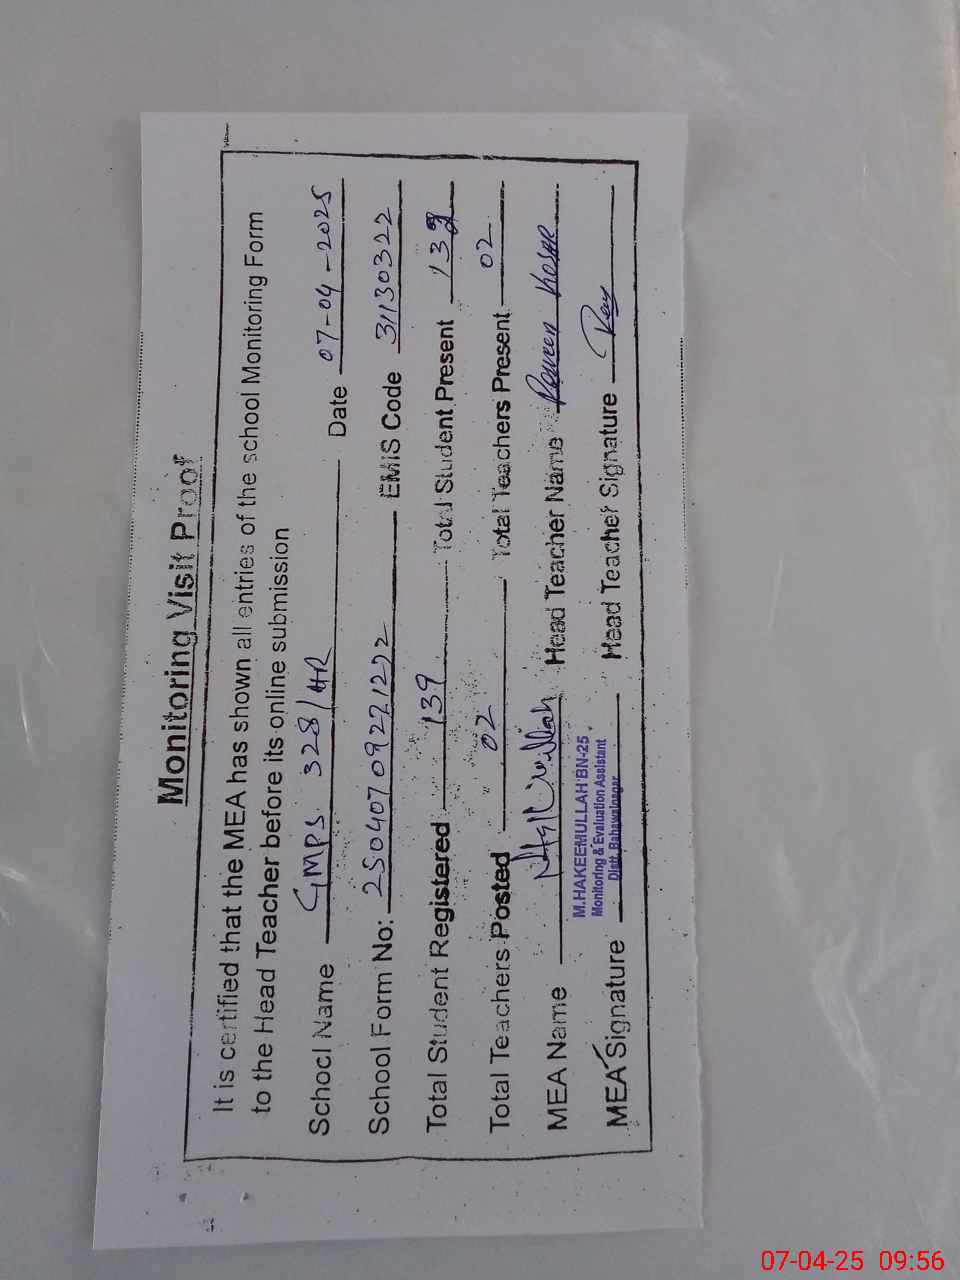 Monitoring Visit Proof
It is certified that the MEA has shown all entries of the school Monitoring Form
to the Head Teacher before its online submission
School Name GMPS 328/HR Date 07-04-2025
School Form No: 250407092721272 EMIS Code 31130322
Total Student Registered 139 Total Student Present 139
Total Teachers Posted 02 Total Teachers Present 02
MEA Name Head Teacher Name Parveen Kosar
M.HAKEEMULLAH BN-25
Monitoring & Evaluation Assistant
Distt. Bahawalnagar
MEA Signature Head Teacher Signature
07-04-25 09:56